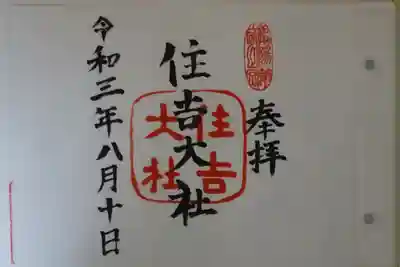 奉拝
住吉大社
住吉大社
令和三年八月十日